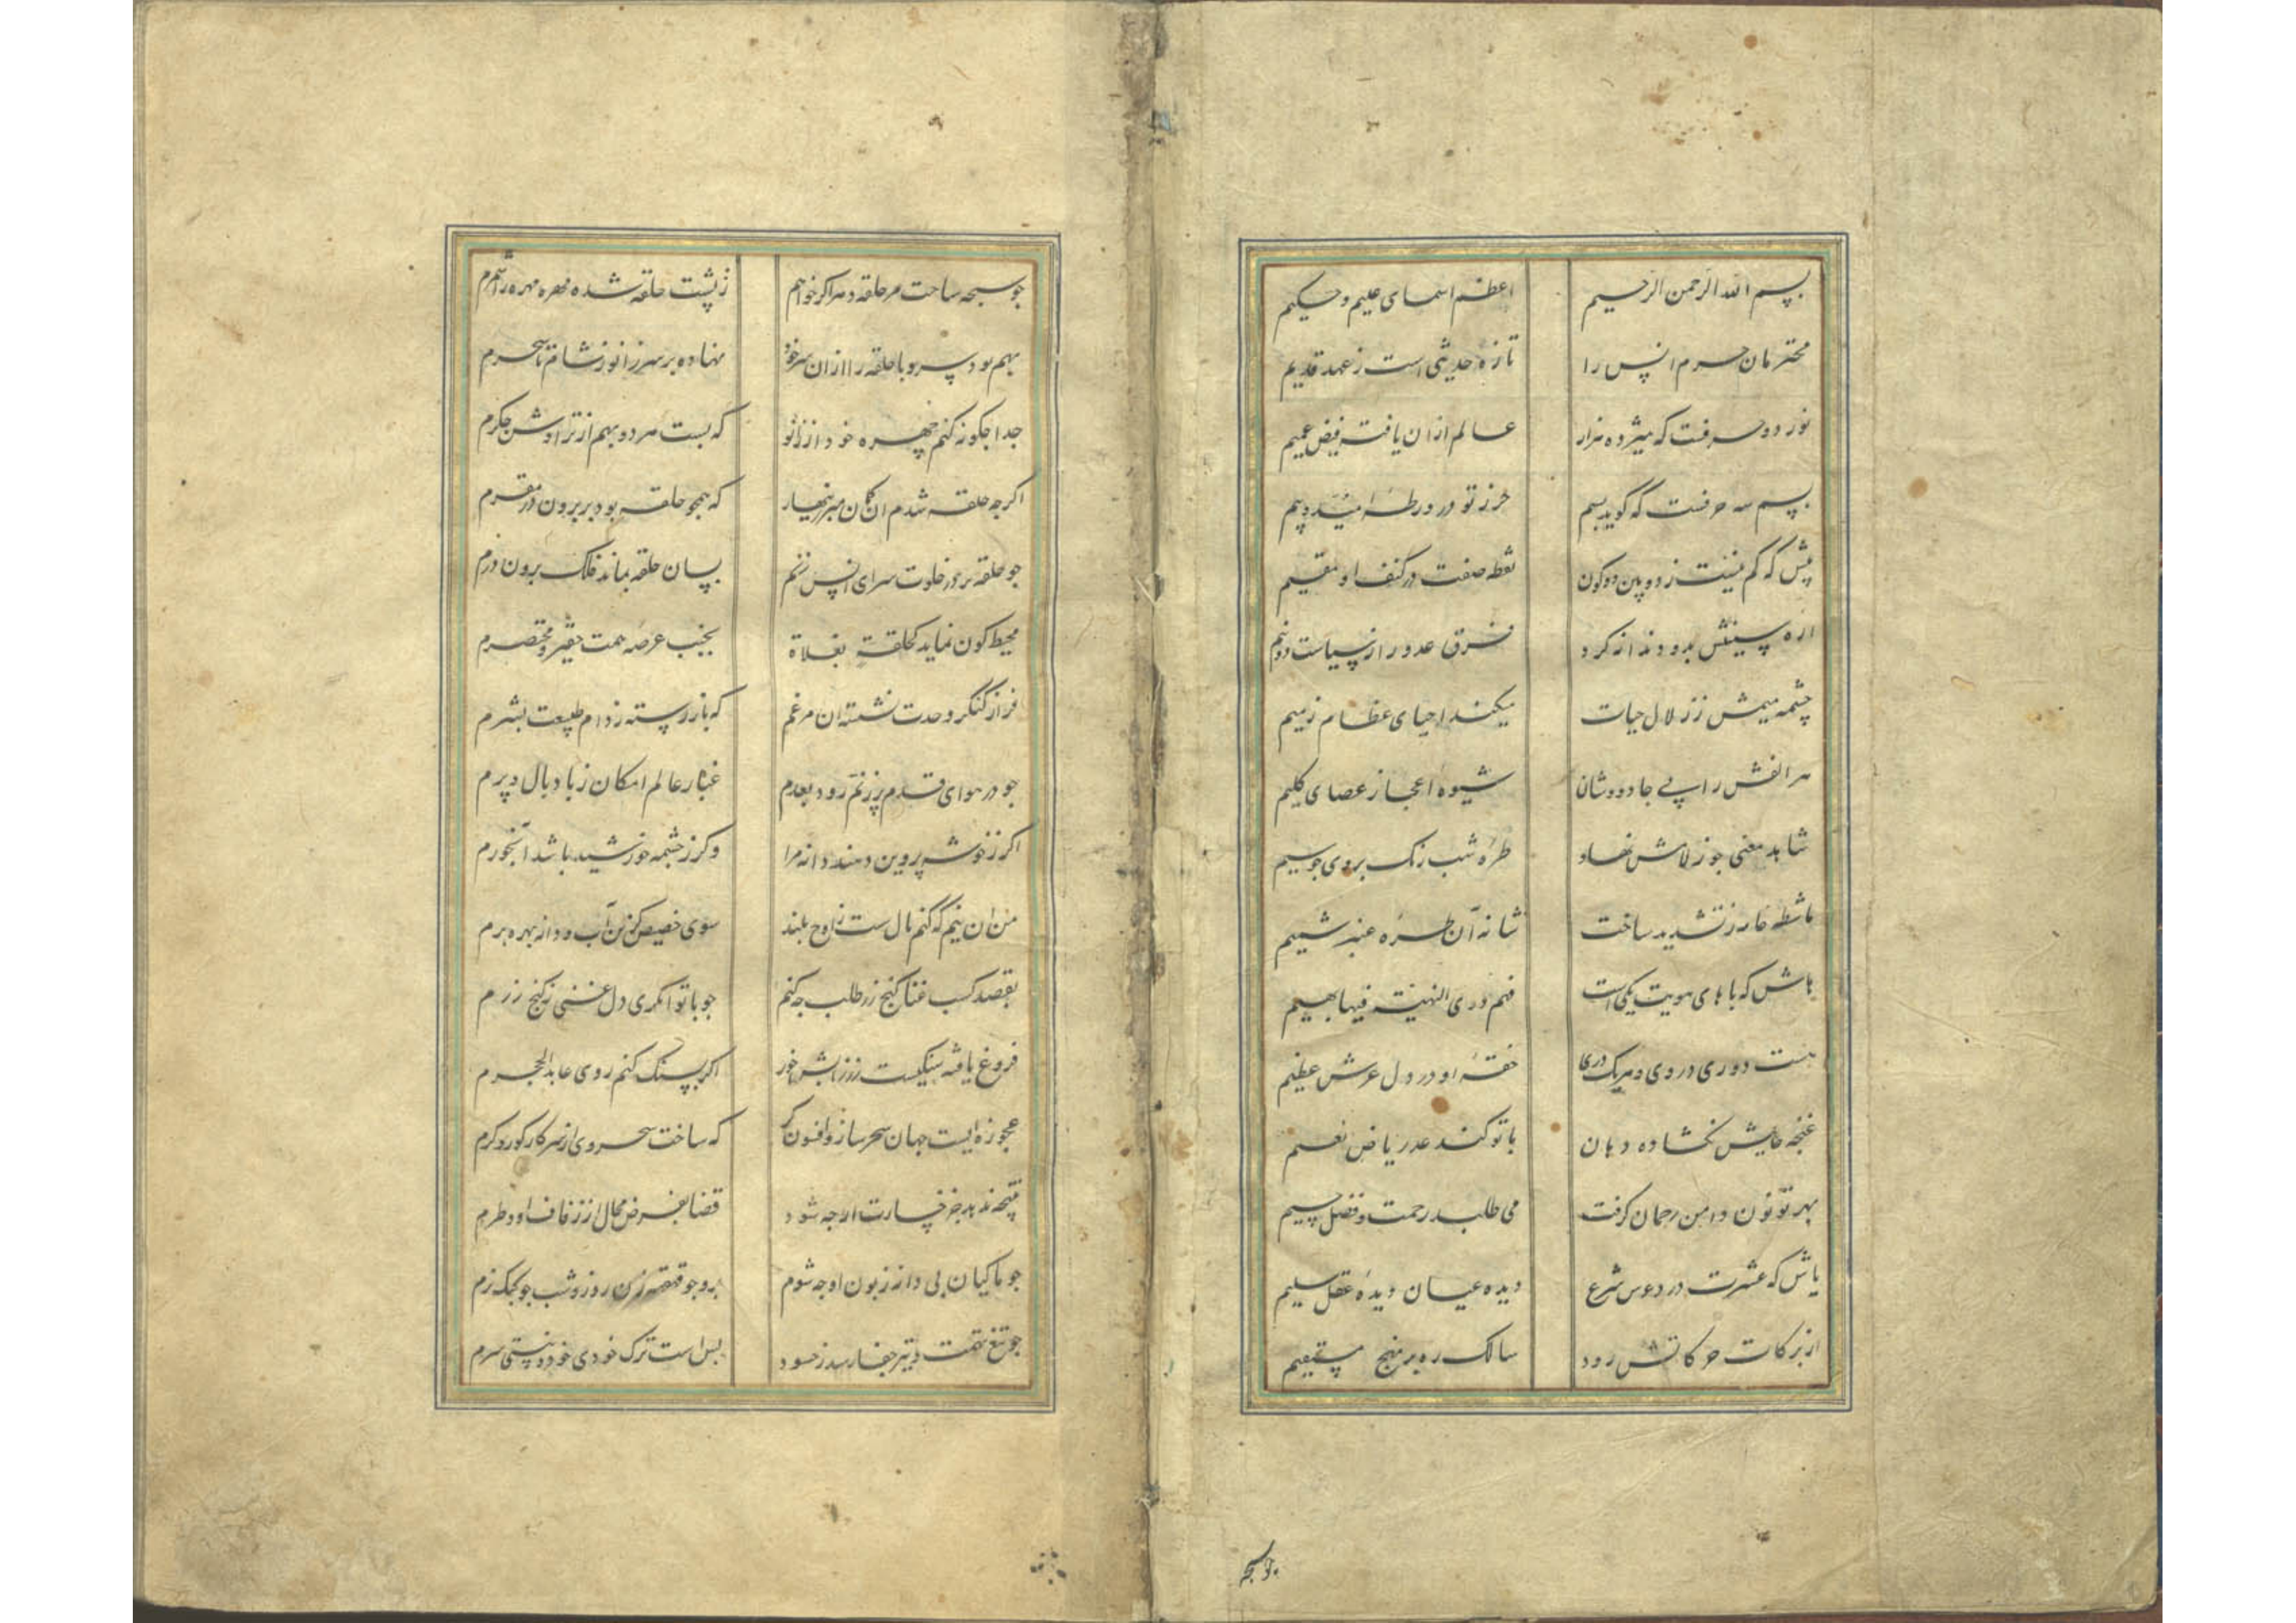 بسم الله الرحمن الرحیم اعظم اسمای علیم و حکیم
محترمان حرم انس را تازه حدیثی است ز عهد قدیم
نوزده حرفست که هیژده هزار عالم ازان یافته فیض عمیم
بسم سه حرفست که گوید بسم حرز تو در ورطه امید و بیم
بیش که کم نیست ز دو بین دو کون نقطه صفت در کنف او مقیم
اره سینش بدو دندانه کرد فرق عدو را ز سیاست دو نیم
چشمه میمش ز زلال حیات میکند احیای عظام رمیم
هر الفش را پی جادووشان شیوه اعجاز عصای کلیم
شاهد معنی چو ز لامش نهاد طره شب رنگ بروی چو سیم
ماشطه خامه ز تشدید ساخت شانه آن طره عنبر شمیم
هاش که با های هویت یکی است فهم ذوی النهیة فیها یهیم
هست دری در وی و هر یک دری حقه او در دل عرش عظیم
غنچه حایش نگشاده دهان با تو کند عد ریاض نعیم
بهر تو نون دامن رحمان گرفت می طلبد رحمت و فضل جسیم
یاش که عشرست در دعوس شرع دیده عیان دیده عقل سلیم
از برکات حرکاتش رود سالک ره بر نهج مستقیم
چو سبحه
چو سبحه ساخت مر حلقه دهر اگر خواهم ز پشت حلقه شده مهره مهره برشمرم
بهم بود سر و پا حلقه را ازان سر خود نهاده بر سر زانو ز شام تا سحرم
جدا چگونه کنم چهره خود از زانو که بست هر دو بهم از تراوش جگرم
اگر چه حلقه شدم آن گمان مبر زنهار که همچو حلقه بود بر برون در مقرم
چو حلقه بر در خلوت سرای انس زنم بسان حلقه بماند فلک برون درم
محیط کون نماید کحلقة بفلاة بجنب عرصه همت حقیر و مختصرم
فراز کنگر وحدت نشسته آن مرغم که باز رسته ز دام طبیعت بشرم
چو در هوای قدم پر زنم رود بعدم غبار عالم امکان ز باد بال و پرم
اگر ز خوشه پروین دهند دانه مرا وگر ز چشمه خورشید باشد آبخورم
من آن نیم که کنم بال سست ز اوج بلند سوی حضیض کزین آب و دانه بهره برم
بقصد کسب غنا گنج زر طلب چه کنم چو با توانگری دل غنی ز گنج زرم
فروغ یافته سنگیست زر ز تابش خور اگر بسنگ کنم روی عابد الحجرم
عجوزه ایست جهان سحرساز و افسونگر که ساخت سحر وی از سر کار کور و کرم
نتیجه ندهد جز خسارت ار چه شود قضا بفرض محال از زفاف او وطرم
چو ماکیان پی دانه زبون او چه شوم برو چو قهقهه زن روز و شب چو کبک زرم
چو تیغ تهمت و تیر جفا رسد ز حسود بس است ترک خودی خود و نیستی سپرم